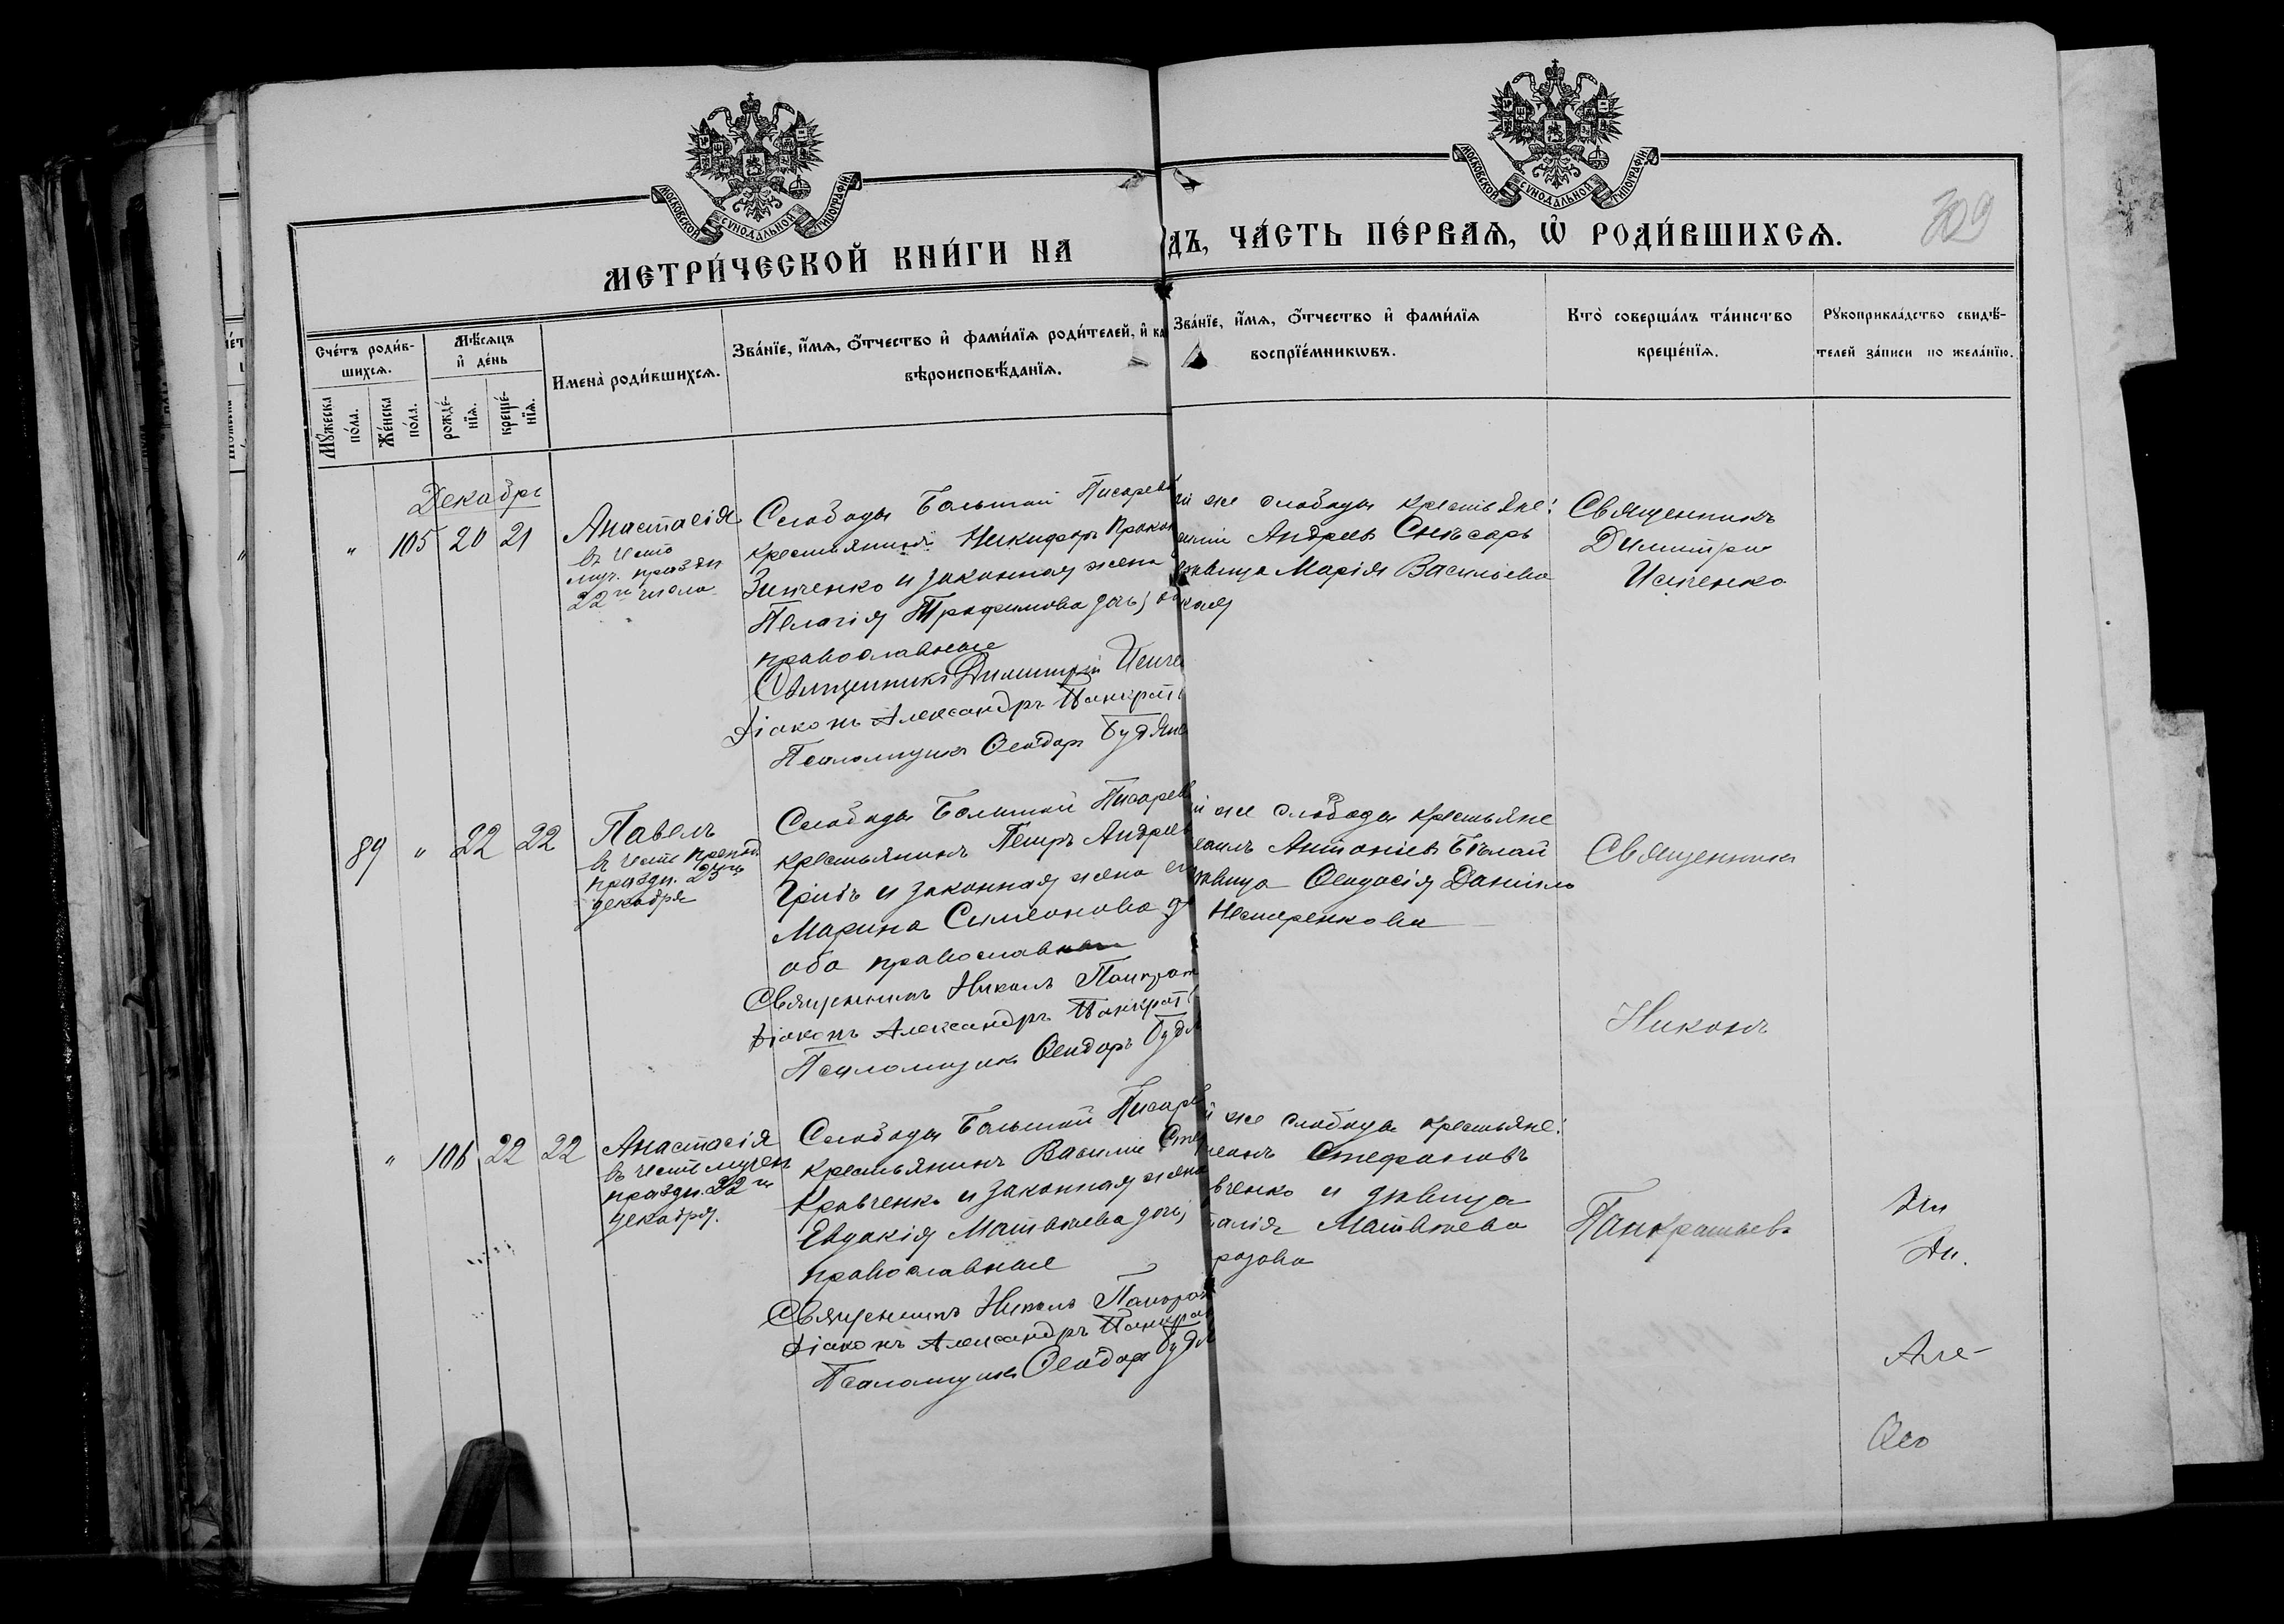 МОСКОВСКОЙ СѴНОДАЛЬНОЙ ТИПОГРАФІИ
МОСКОВСКОЙ СѴНОДАЛЬНОЙ ТИПОГРАФІИ
309
МЕТРИ́ЧЕСКОЙ КНИ́ГИ НА
ДЪ, ЧА́СТЬ ПЕ́РВАѦ, Ѡ РОДИ́ВШИХСѦ.
Сче́тъ роди́в-
шихсѧ.
Мꙋ́жеска
по́ла.
Же́нска
по́ла.
Мѣ́сѧцъ
и҆ де́нь
рожде́-
нїѧ.
креще́-
нїѧ.
Имена̀ роди́вшихсѧ.
Зва́нїе, и҆́мѧ, ѻ҆́тчество и҆ фами́лїѧ роди́телей, и҆ ка
вѣроисповѣ́данїѧ.
Зва́нїе, и҆́мѧ, ѻ҆́тчество и҆ фами́лїѧ
воспрїе́мникѡвъ.
Кто̀ соверша́лъ та́инство
креще́нїѧ.
Рꙋкоприкла́дство свидѣ́-
телей за́писи по жела́нїю.
Декабрь
" 105 20 21
Анастасія
въ честь
муч. праздн
22го числа
Слободы Большой Писарев
крестьянинъ Никифоръ Проко
Зинченко и законная жена
Пелагія Трофимова дочь,
православные
Священникъ Димитрій
Діаконъ Александръ Панкрат
Псаломщикъ Ѳеодоръ Будян
й же слободы крестьяне:
Андреевъ Слѣсарь
дѣвица Марія Васильева
кая
Священникъ
Димитрій
Ильченко
89 " 22 22
Павелъ
въ честь препод.
праздн. 23го
декабря
Слободы Большой Писарев
крестьянинъ Петръ Андрее
и законная жена его
Марина Симеонова д
оба православные
Священникъ Никонъ Панкрат
Діаконъ Александръ Панкрат
Псаломщикъ Ѳеодоръ Будя
й же слободы крестьяне
Антоніевъ Бѣлай
дѣвица Ѳеодосія Даніило
Нестеренкова
Священникъ
Никонъ
Панкратьевъ
" 106 22 22
Анастасія
въ честь мучен.
праздн. 22го
декабря.
Слободы Большой Писарев
крестьянинъ Василій Сте
Кравченко и законная жена
Евдокія Матвѣева дочь,
православные
Священникъ Никонъ Панкрат
Діаконъ Александръ Панкрат
Псаломщикъ Ѳеодоръ Будя
й же слободы крестьяне:
Стефановъ
вченко и дѣвица
талія Матвѣева
розова
Ди.
Але-
Ѳео